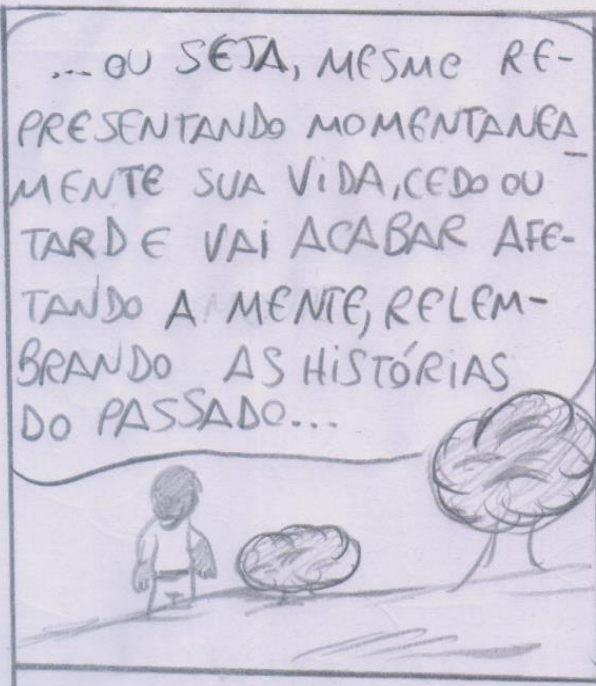 ... OU SEJA, MESMO RE-
PRESENTANDO MOMENTANEA_
MENTE SUA VIDA, CEDO OU
TARDE VAI ACABAR AFE-
TANDO A MENTE, RELEM-
BRANDO AS HISTÓRIAS
DO PASSADO...